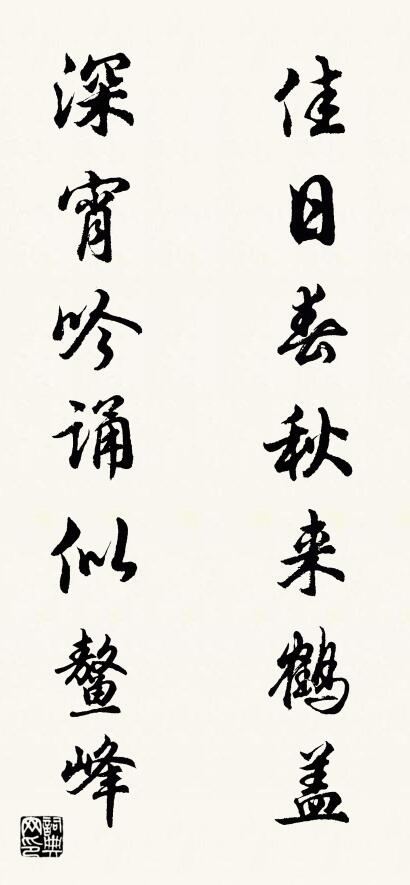 佳日春秋来鹤盖
深宵吟诵似鳌峰
詞典
网印